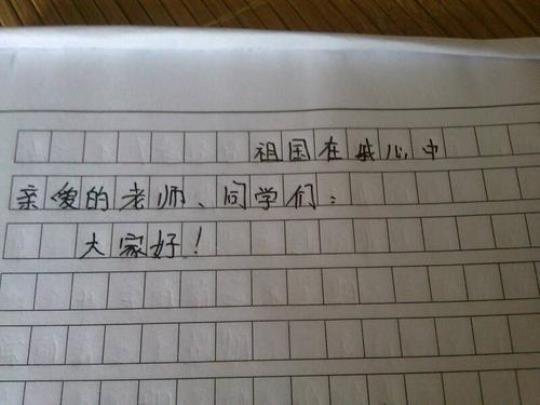 祖国在我心中
亲爱的老师、同学们：
大家好！